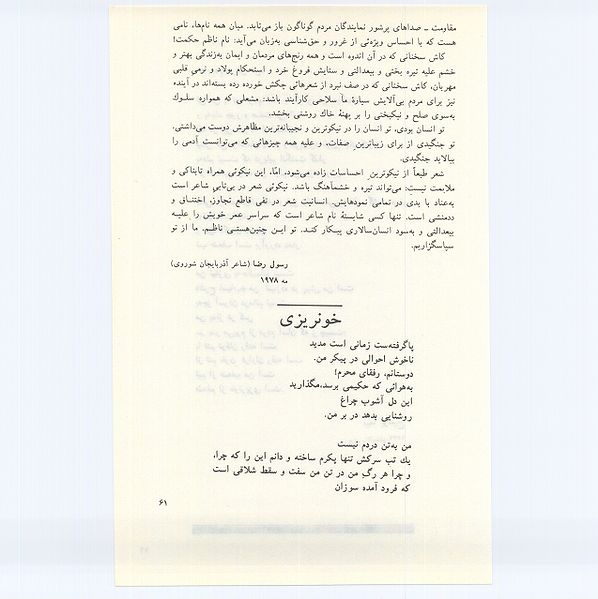 مقاومت ـ صداهای پرشور نمایندگان مردم گوناگون باز می‌تابد. میان همه نام‌ها، نامی
هست که با احساس ویژه‌ئی از غرور و حق‌شناسی به‌زبان می‌آید: نام ناظم حکمت!
کاش سخنانی که در آن اندوه است و همه رنج‌های مردمان و ایمان به‌زندگی بهتر و
خشم علیه تیره بختی و بیعدالتی و ستایش فروغ خرد و استحکام پولاد و نرمی قلبی
مهربان، کاش سخنانی که در صف نبرد از شعرهائی چکش خورده رده بسته‌اند در آینده
نیز برای مردم بی‌آلایش سیارهٔ ما سلاحی کارآیند باشد: مشعلی که همواره سلوك
به‌سوی صلح و نیکبختی را بر پهنهٔ خاك روشنی بخشد.
تو انسان بودی، تو انسان را در نیکوترین و نجیبانه‌ترین مظاهرش دوست می‌داشتی.
تو جنگیدی از برای زیباترین صفات، و علیه همه چیزهائی که می‌توانست آدمی را
بیالاید جنگیدی.
شعر طبعاً از نیکوترین احساسات زاده می‌شود، امّا، این نیکوئی همراه تابناکی و
ملایمت نیست: می‌تواند تیره و خشماهنگ باشد. نیکوئی شعر در بی‌تابی شاعر است
به‌عناد با بدی در تمامی نمودهایش. انسانیت شعر در نفی قاطع تجاوز، اختناق و
ددمنشی است. تنها کسی شایستهٔ نام شاعر است که سراسر عمر خویش را علیه
بیعدالتی و به‌سود انسان‌سالاری پیکار کند. تو این چنین‌هستی ناظم. ما از تو
سپاسگزاریم.
رسول رضا (شاعر آذربایجان شوروی)
مه ۱۹۷۸
خونریزی
پاگرفته‌ست زمانی است مدید
ناخوش احوالی در پیکر من.
دوستانم، رفقای محرم!
به‌هوائی که حکیمی برسد، مگذارید
این دل آشوب چراغ
روشنایی بدهد در بر من.
من به‌تن دردم نیست
یك تب سرکش تنها پکرم ساخته و دانم این را که چرا،
و چرا هر رگ من در تن من سفت و سقط شلاقی است
که فرود آمده سوزان
۶۱